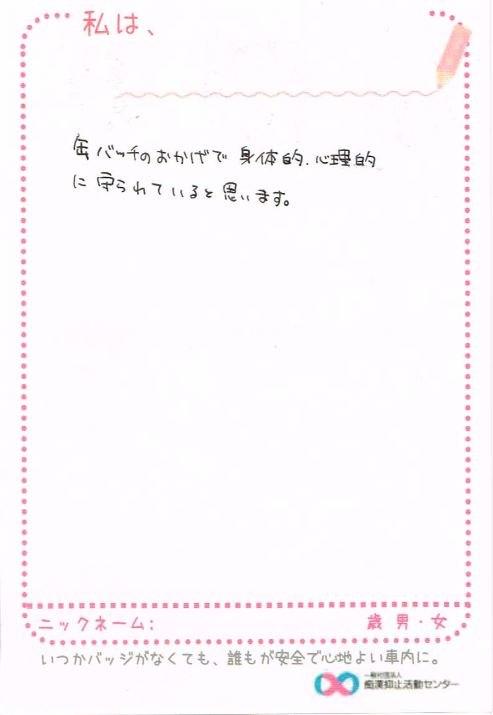 私は、
缶バッチのおかげで 身体的、心理的
に守られていると思います。
ニックネーム: 歳 男・女
いつかバッジがなくても、誰もが安全で心地よい車内に。
一般社団法人
痴漢抑止活動センター